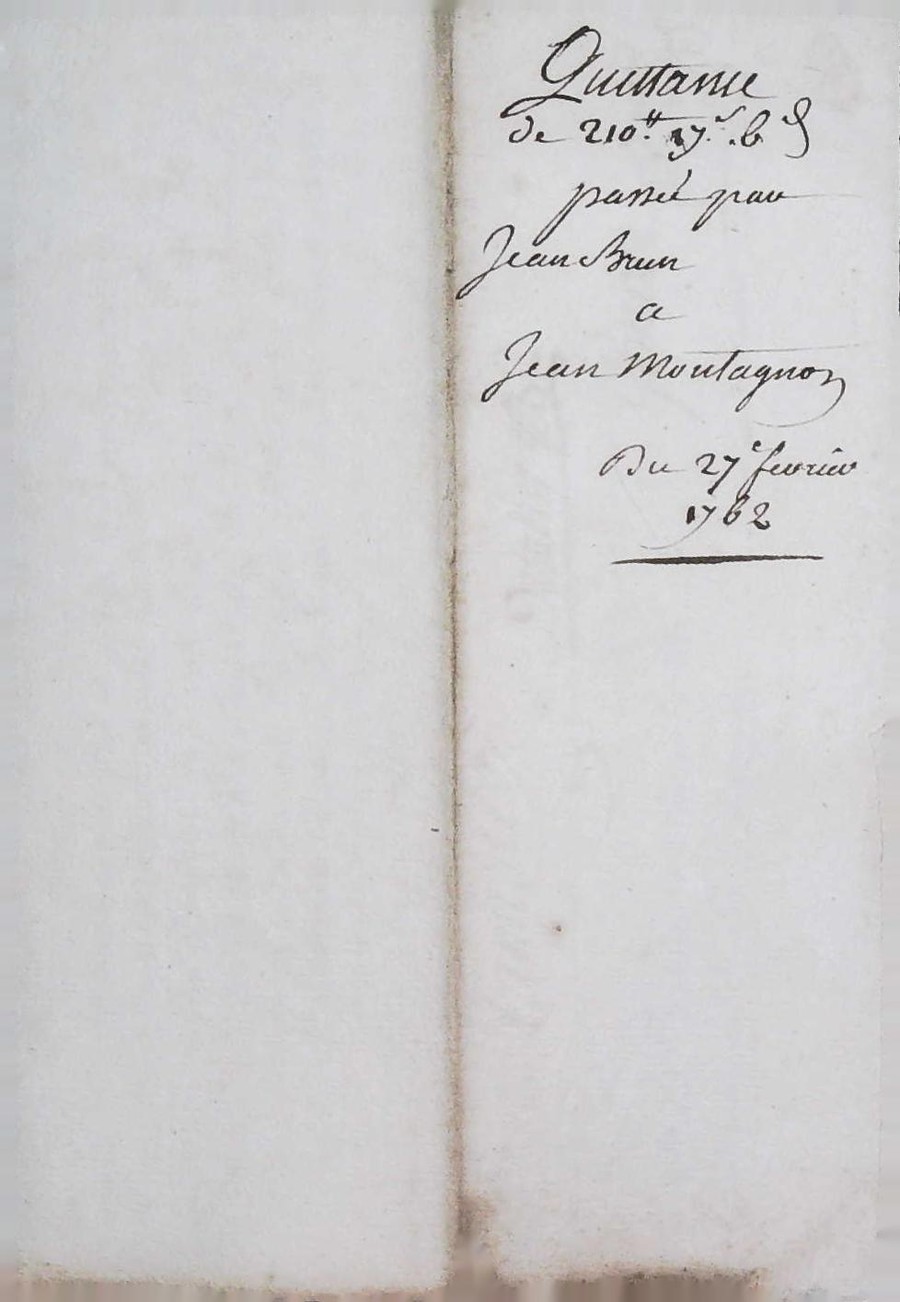 Quittance
de 210# 17s. 6d
passé par
Jean Brun
a
Jean Montagnon
Du 27e fevrier
1762